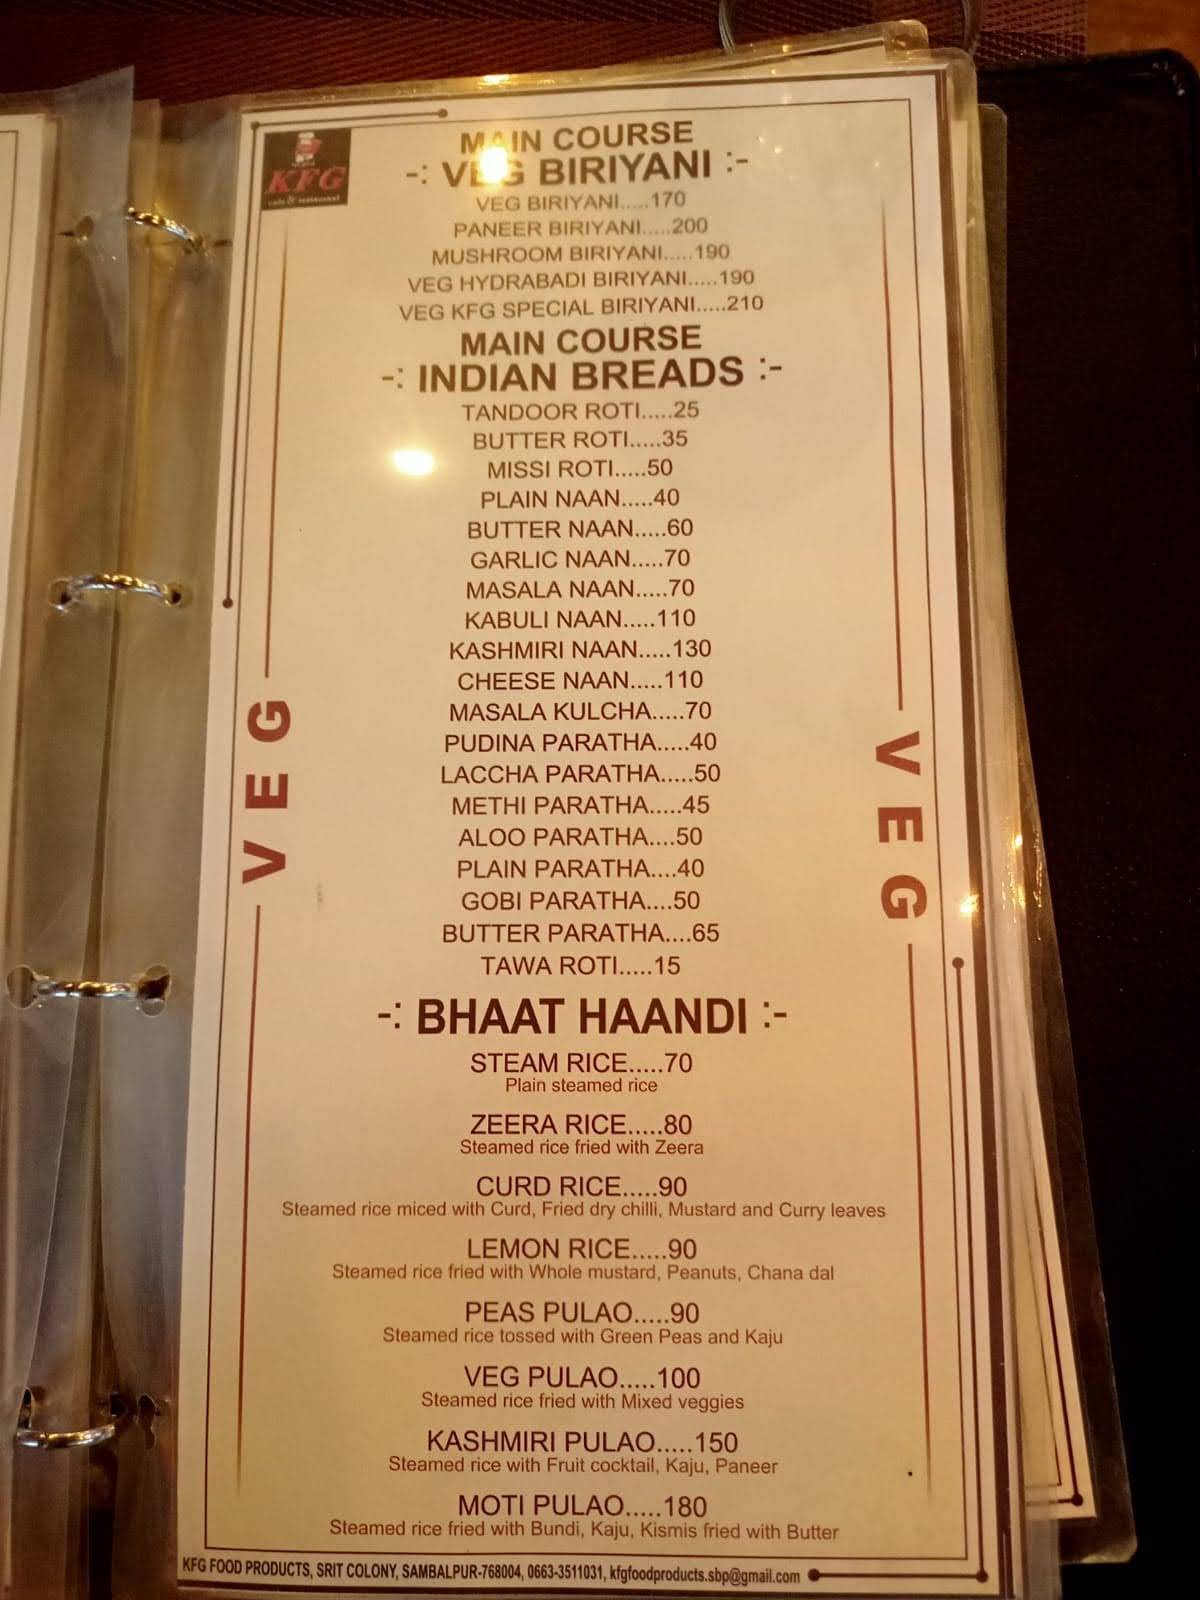 KFG
cafe & restaurant
MAIN COURSE
-: VEG BIRIYANI :-
VEG BIRIYANI.....170
PANEER BIRIYANI.....200
MUSHROOM BIRIYANI.....190
VEG HYDRABADI BIRIYANI.....190
VEG KFG SPECIAL BIRIYANI.....210
MAIN COURSE
-: INDIAN BREADS :-
TANDOOR ROTI.....25
BUTTER ROTI.....35
MISSI ROTI.....50
PLAIN NAAN.....40
BUTTER NAAN.....60
GARLIC NAAN.....70
MASALA NAAN.....70
KABULI NAAN.....110
KASHMIRI NAAN.....130
CHEESE NAAN.....110
MASALA KULCHA.....70
PUDINA PARATHA.....40
LACCHA PARATHA.....50
METHI PARATHA.....45
ALOO PARATHA....50
PLAIN PARATHA....40
GOBI PARATHA....50
BUTTER PARATHA....65
TAWA ROTI.....15
VEG
VEG
-: BHAAT HAANDI :-
STEAM RICE.....70
Plain steamed rice
ZEERA RICE.....80
Steamed rice fried with Zeera
CURD RICE.....90
Steamed rice miced with Curd, Fried dry chilli, Mustard and Curry leaves
LEMON RICE.....90
Steamed rice fried with Whole mustard, Peanuts, Chana dal
PEAS PULAO.....90
Steamed rice tossed with Green Peas and Kaju
VEG PULAO.....100
Steamed rice fried with Mixed veggies
KASHMIRI PULAO.....150
Steamed rice with Fruit cocktail, Kaju, Paneer
MOTI PULAO.....180
Steamed rice fried with Bundi, Kaju, Kismis fried with Butter
KFG FOOD PRODUCTS, SRIT COLONY, SAMBALPUR-768004, 0663-3511031, kfgfoodproducts.sbp@gmail.com